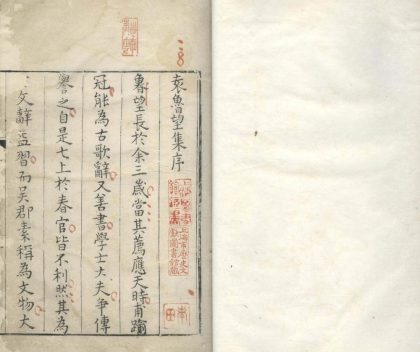 袁魯望集序
上海市歷史文
獻圖書館藏
魯望長於余三歲當其薦應天時甫踰
冠能為古歌辭又善書學士大夫爭傳
譽之自是七上於春官皆不利然其為
文辭益習而吳郡素稱為文物大